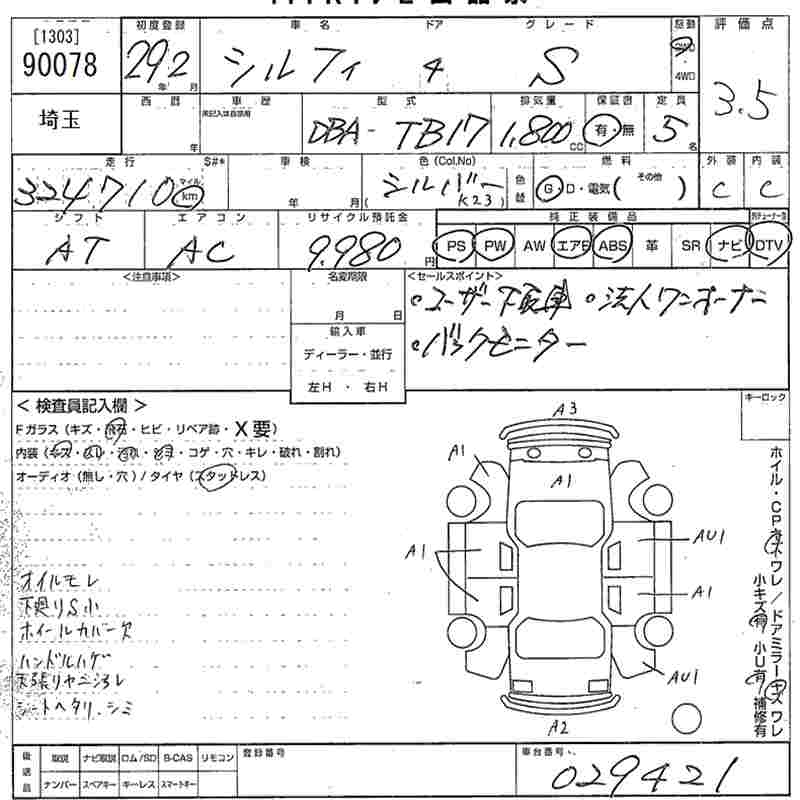 [1303]
90078
初度登録
29 2
年 月
車名
シルフィ
ドア
4
グレード
S
駆動
2WD
4WD
評価点
3.5
埼玉
西暦
年
車歴
未記入は自家用
型式
DBA-TB17
排気量
1,800 CC
保証書
有・無
定員
5 名
走行
S#*
324710
マイル
km
車検
年 月
色(Col,No)
シルバー
( K23 )
色替
燃料
G・D・電気( その他 )
外装
C
内装
C
シフト
AT
エアコン
AC
リサイクル預託金
9,980 円
純正装備品
PS PW AW エアB ABS 革 SR ナビ DTV
<注意事項>
名変期限
月 日
輸入車
ディーラー・並行
左H ・ 右H
<セールスポイント>
・ユーザー下取車 ・法人ワンオーナー
・バックモニター
< 検査員記入欄 >
Fガラス (キズ・飛石・ヒビ・リペア跡・X要)
内装 (キズ・スレ・汚れ・シミ・コゲ・穴・キレ・破れ・割れ)
オーディオ (無し・穴) / タイヤ (スタッドレス)
オイルモレ
下廻りS小
ホイールカバーキズ
ハンドルハゲ
天張リヤニヨゴレ
シートヘタリ、シミ
キーロック
A3
A1
A1
A1
AU1
A1
AU1
A2
ホイル・CPキズワレ / ドアミラーキズワレ
小キズ有 小U有 補修有
後送品
取説 ナビ取説 ロム/SD B-CAS リモコン
ナンバー スペアキー キーレス スマートキー
登録番号
車台番号
029421